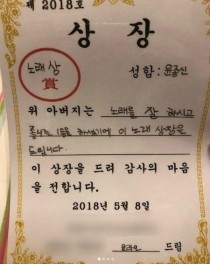 제 2018호
상 장
노래상
賞
성함: 윤종신
위 아버지는 노래를 잘 하시고
이 노래 상장을
드립니다.
이 상장을 드려 감사의 마음
을 전합니다.
2018년 5월 8일
드림